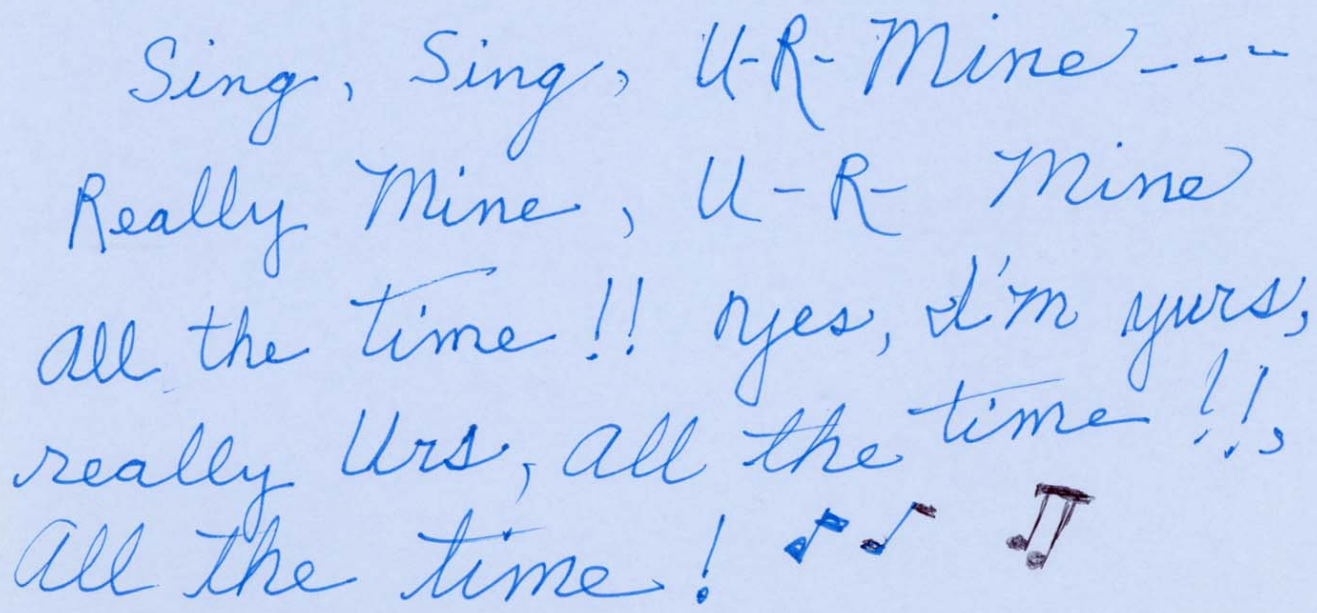 Sing, Sing, U-R-Mine---
Really Mine, U-R- Mine
all the time!! yes, I'm yurs,
really Urs, all the time!!,
All the time!